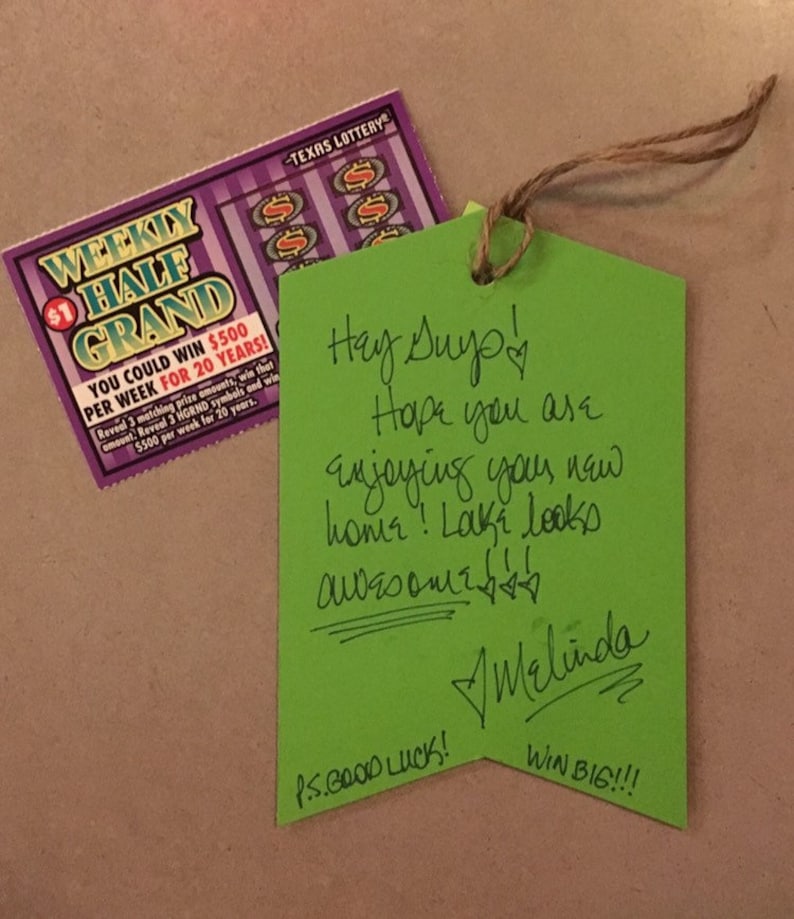 TEXAS LOTTERY®
WEEKLY
HALF
GRAND
$1
YOU COULD WIN $500
PER WEEK FOR 20 YEARS!
Reveal 3 matching prize amounts, win that
amount. Reveal 3 HGRND symbols and win
$500 per week for 20 years.
Hey Guys!
Hope you are
enjoying your new
home! Lake looks
awesome!!!
Melinda
P.S. GOOD LUCK!
WIN BIG!!!